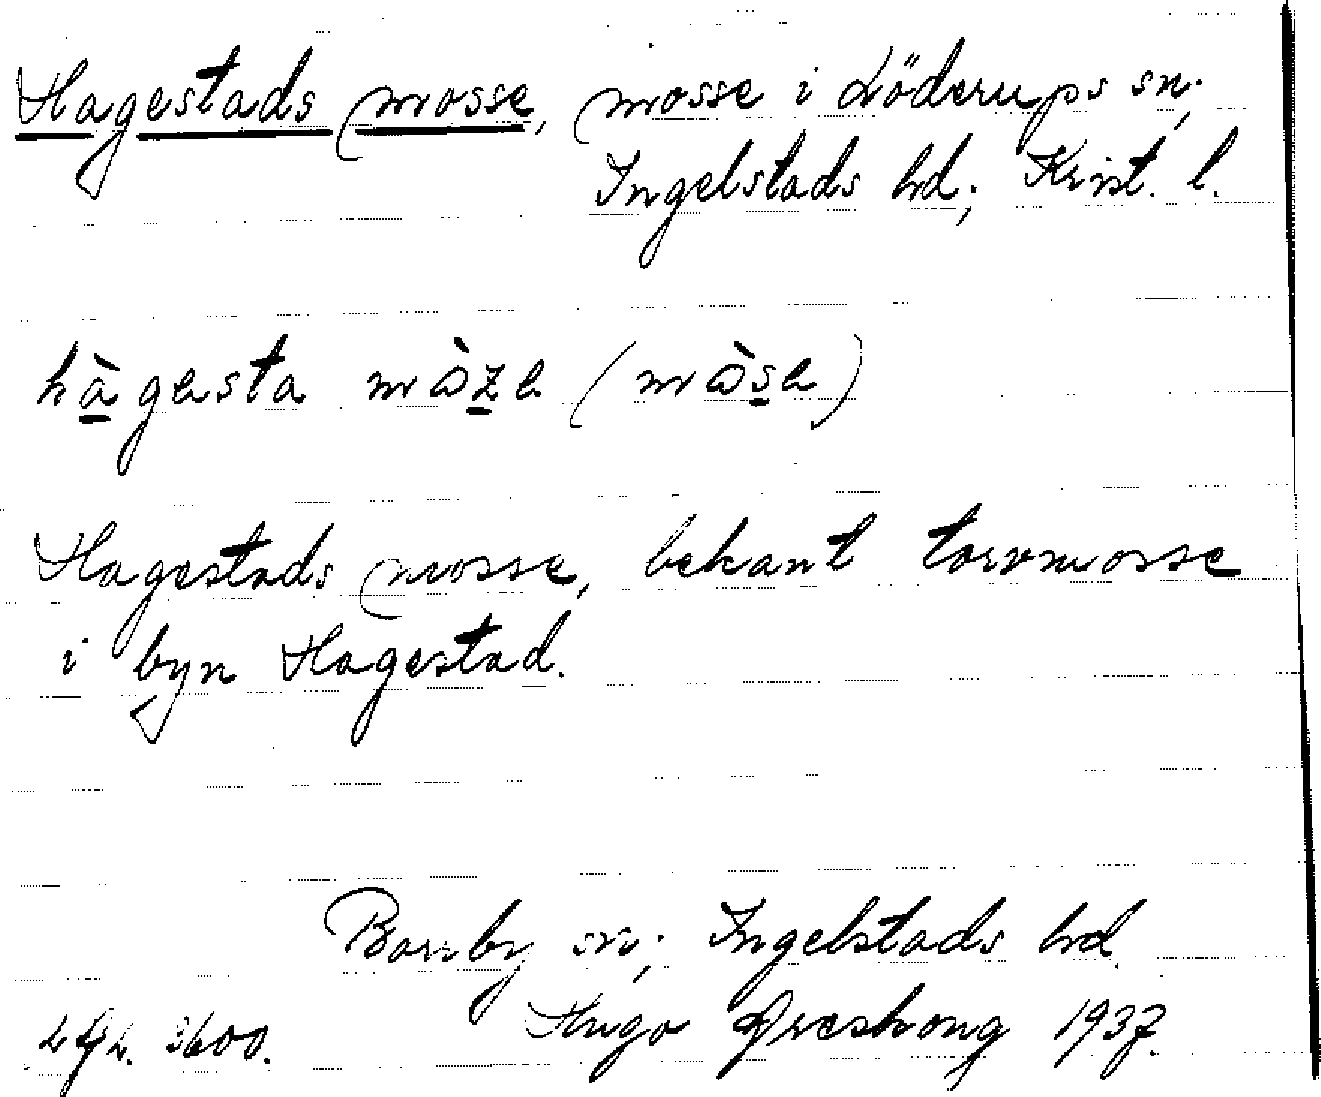 Hagestads mosse, mosse i Löderups sn;
Ingelstads hd; Krist. l.
hàgesta mòze (mòse)
Hagestads mosse, bekant torvmosse
i byn Hagestad.
Borrby sn; Ingelstads hd.
3600. Hugo Areskoug 1937.